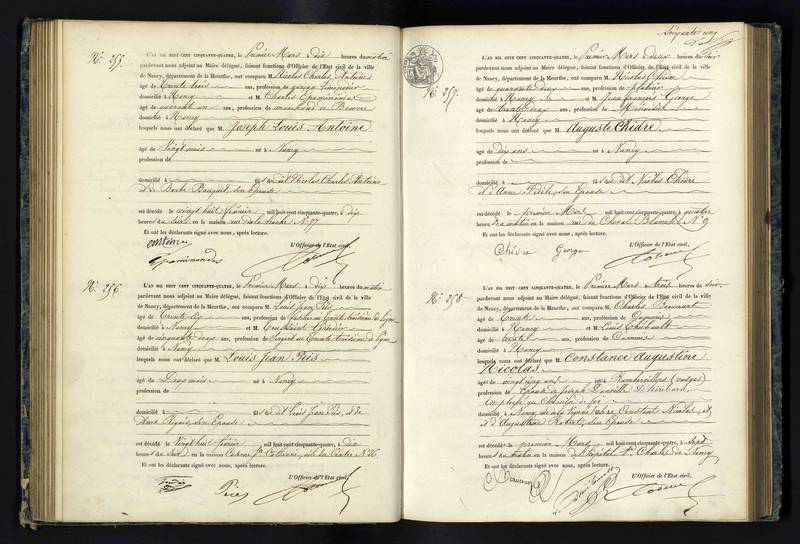 N.o 255.
L'AN MIL HUIT CENT CINQUANTE-QUATRE, le Premier Mars à dix heures du matin
pardevant nous adjoint au Maire délégué, faisant fonctions d'Officier de l'Etat civil de la ville
de Nancy, département de la Meurthe, ont comparu M. Nicolas Charles Antoine
âgé de trente trois ans, profession de garçon limonadier
domicilié à Nancy et M. Charles Epaminondas
âgé de quarante un ans, profession de marchand de Beurre
domicilié à Nancy
lesquels nous ont déclaré que M. Joseph Louis Antoine
âgé de Vingt mois né à Nancy
profession de
domicilié à fils dudit Nicolas Charles Antoine
et de Barbe Bouquet, son Epouse
est décédé le vingt huit février mil huit cent cinquante-quatre, à dix
heures du soir en la maison rue de la hache N.o 77
Et ont les déclarants signé avec nous, après lecture.
L'Officier de l'Etat civil,
antoine
Epaminondas
N.o 256.
L'AN MIL HUIT CENT CINQUANTE-QUATRE, le Premier Mars à dix heures du matin
pardevant nous adjoint au Maire délégué, faisant fonctions d'Officier de l'Etat civil de la ville
de Nancy, département de la Meurthe, ont comparu M. Louis Jean Pris
âgé de trente six ans, profession de fusilier au trente troisième de ligne
domicilié à Nancy et M. Toussaint
âgé de cinquante deux ans, profession de Sergent au trente troisième de ligne
domicilié à Nancy
lesquels nous ont déclaré que M. Louis Jean Pris
âgé de Deux mois né à Nancy
profession de
domicilié à fils dudit Louis Jean Pris, et de
son Epouse
est décédé le Vingt huit février mil huit cent cinquante-quatre, à dix
heures du soir en la maison Caserne S.te Catherine
Et ont les déclarants signé avec nous, après lecture.
L'Officier de l'Etat civil,
Soixante cinq
N.o 257.
L'AN MIL HUIT CENT CINQUANTE-QUATRE, le Premier Mars à deux heures du soir
pardevant nous adjoint au Maire délégué, faisant fonctions d'Officier de l'Etat civil de la ville
de Nancy, département de la Meurthe, ont comparu M. Nicolas Chidre
âgé de quarante deux ans, profession de plâtrier
domicilié à Nancy et M. Jean François George
âgé de trente huit ans, profession de Menuisier
domicilié à Nancy
lesquels nous ont déclaré que M. Auguste Chidre
âgé de dix ans né à Nancy
profession de
domicilié à fils dudit Nicolas Chidre
et d'Anne Fidèle, son Epouse
est décédé le premier Mars mil huit cent cinquante-quatre, à quatre
heures du matin en la maison rue du Cheval Blanc N.o 9
Et ont les déclarants signé avec nous, après lecture.
L'Officier de l'Etat civil,
Chidre George
N.o 258
L'AN MIL HUIT CENT CINQUANTE-QUATRE, le Premier Mars à trois heures du soir
pardevant nous adjoint au Maire délégué, faisant fonctions d'Officier de l'Etat civil de la ville
de Nancy, département de la Meurthe, ont comparu M. Charles Beaucourt
âgé de trente ans, profession de Commis
domicilié à Nancy et M. Louis Thiebault
âgé de trente ans, profession de Commis
domicilié à Nancy
lesquels nous ont déclaré que M. Constance Augustine
Nicolas
âgée de vingt cinq ans née à Rambervillers (Vosges)
profession de Epouse de Joseph
Employé au Chemin de fer
domiciliée à Nancy, fille de Constant Nicolas, et
et d'Augustine Robert, son Epouse
est décédée le premier Mars mil huit cent cinquante-quatre, à sept
heures du matin en la maison de l'Hôpital St Charles de Nancy
Et ont les déclarants signé avec nous, après lecture.
L'Officier de l'Etat civil,